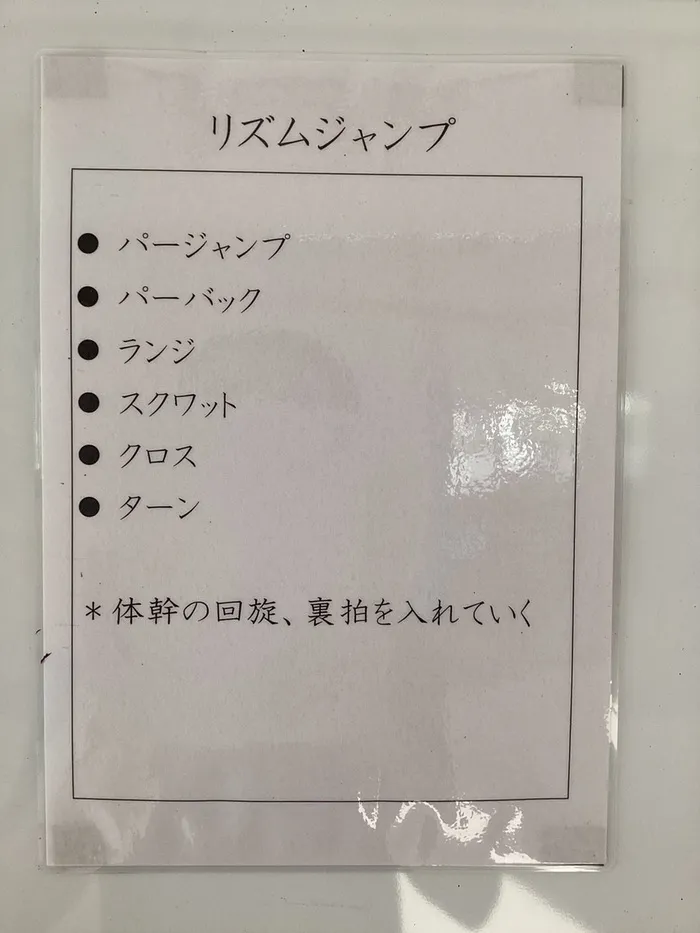 リズムジャンプ
● パージャンプ
● パーバック
● ランジ
● スクワット
● クロス
● ターン
＊体幹の回旋、裏拍を入れていく